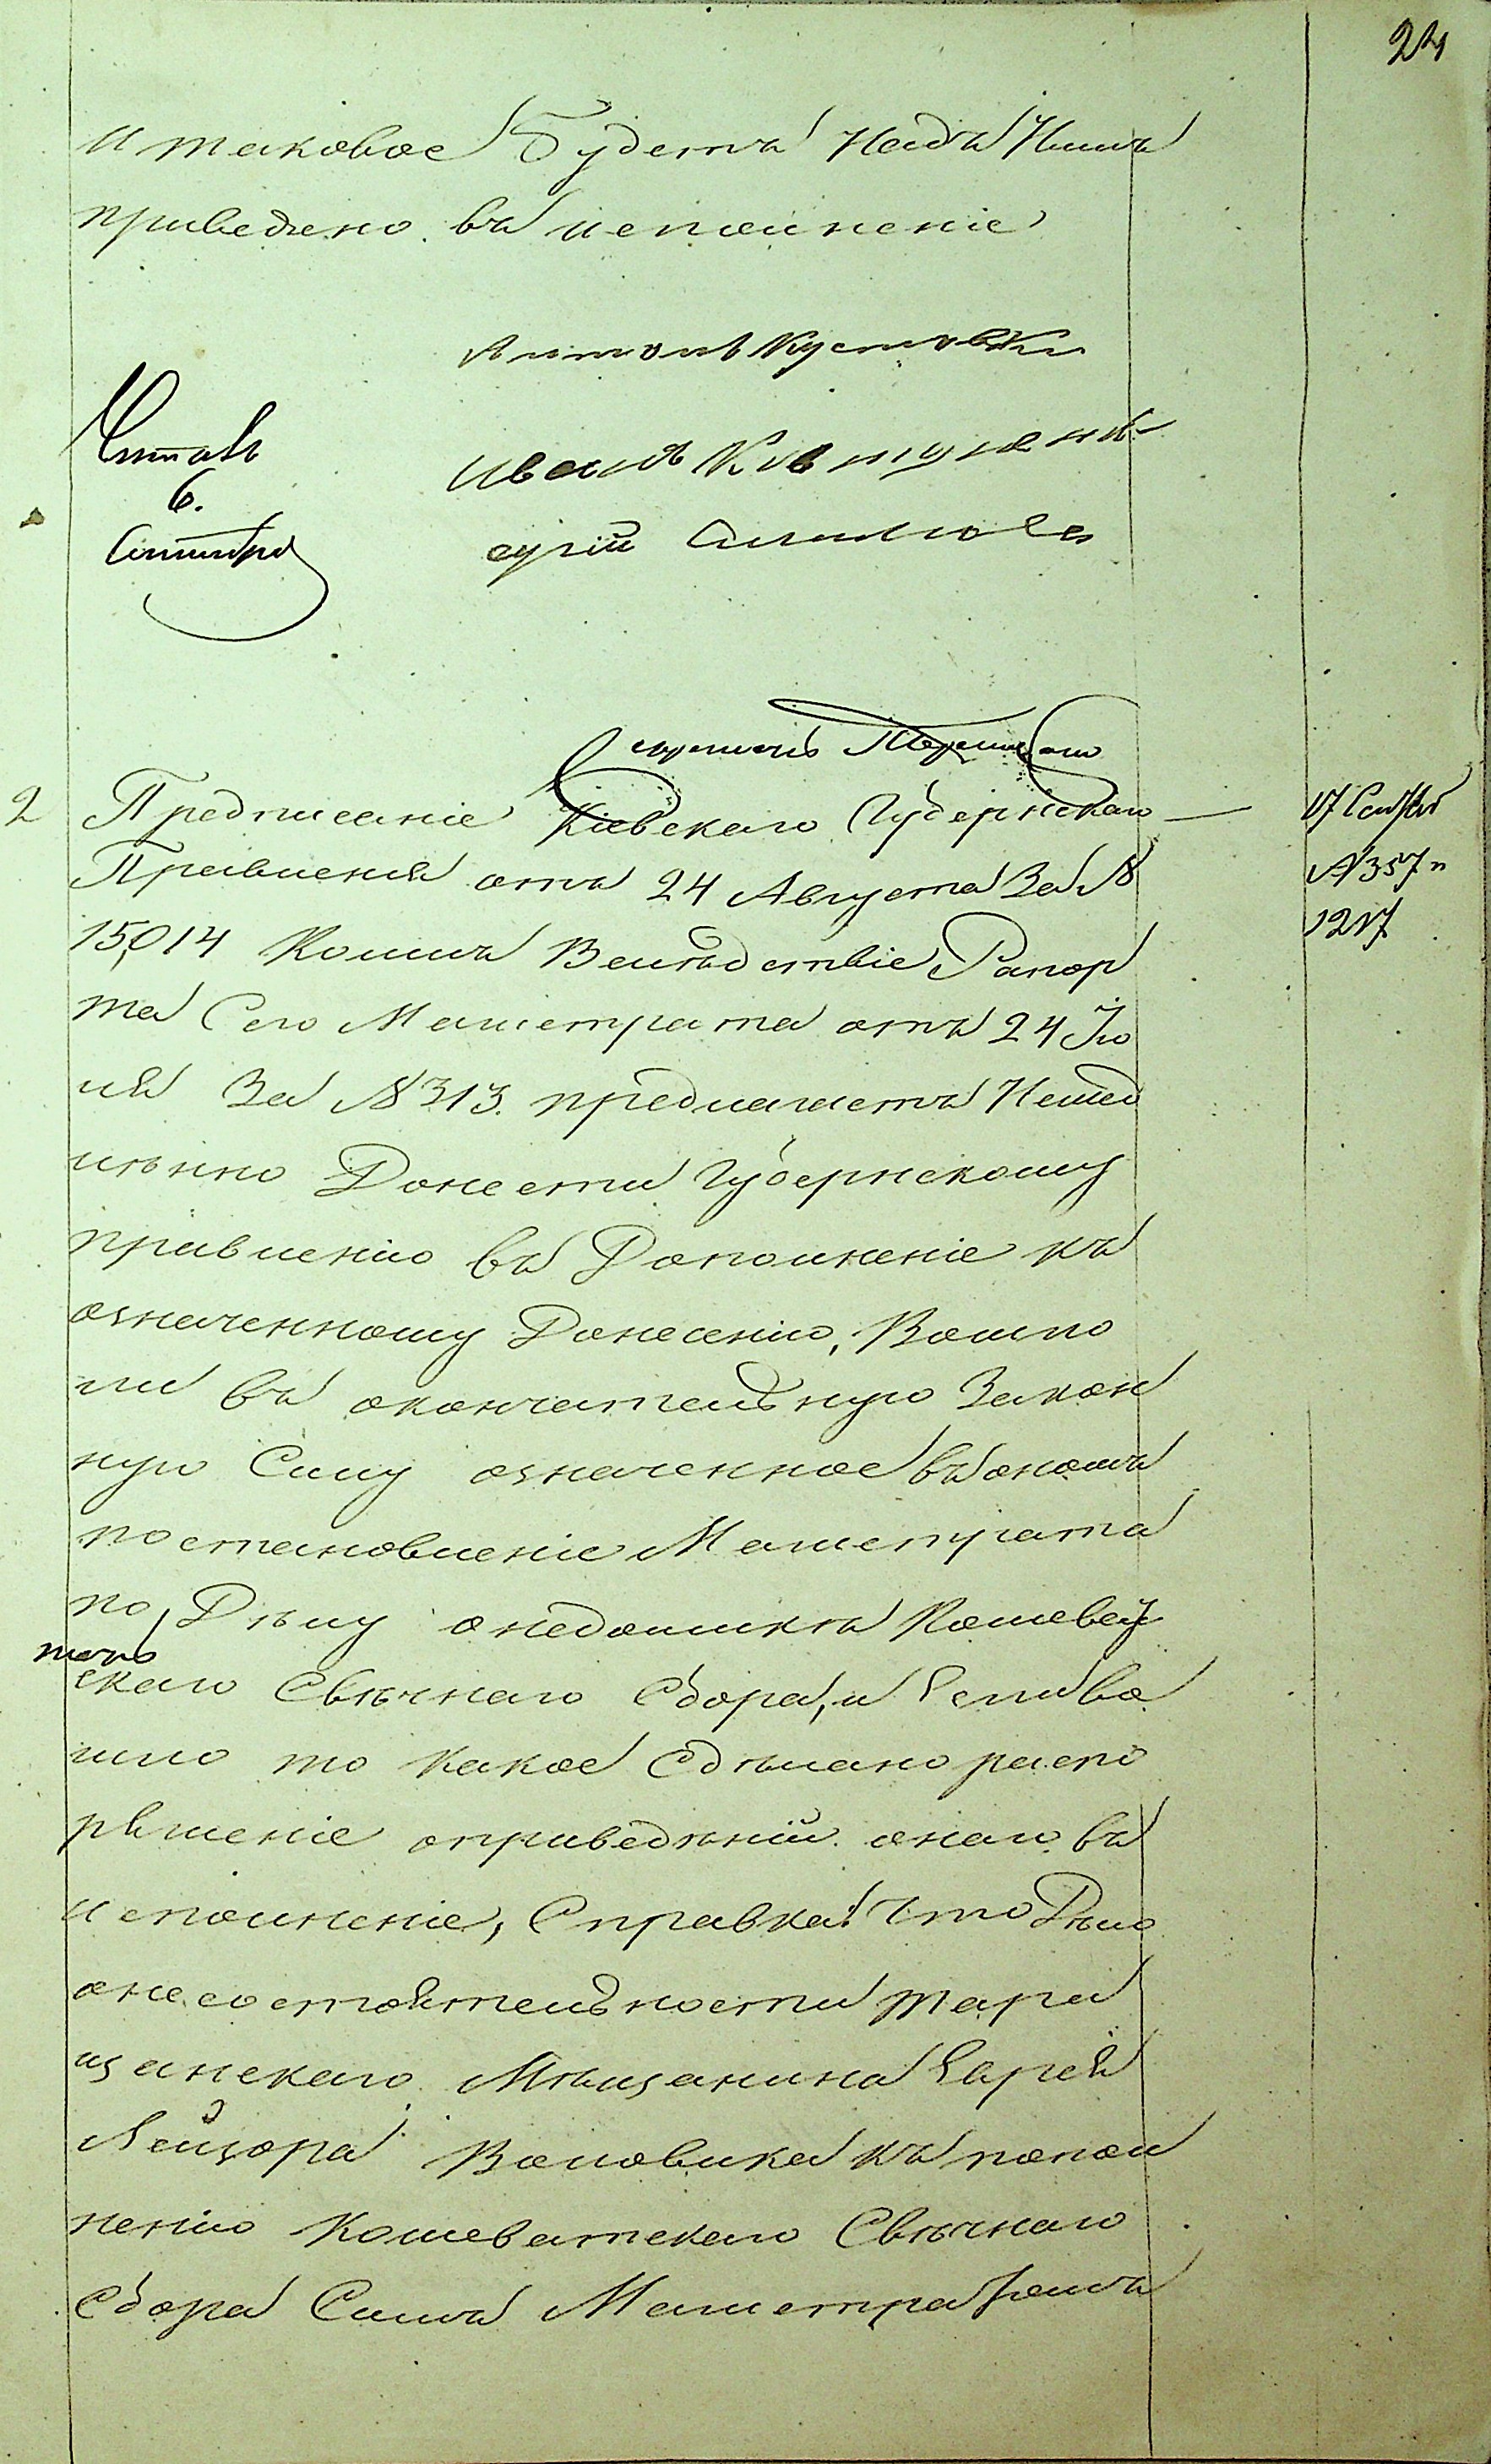 24
и таковое Будетъ Надъ Нимъ
приведено въ исполненіе
Антонъ
Читалъ
Иванъ
6.
2 Предписаніе Кіевскаго Губернскаго
Правленія отъ 24 Августа За №
15,014 Коимъ Вслѣдствіе Рапор
та Сего Магистрата отъ 24 Ію
ля За № 313. предлагаетъ Немед
лѣнно Донести Губернскому
правленію въ Дополненіе къ
означенному Донесенію, Вошло
ли въ окончательную Закон
ную Силу означенное въ ономъ
постановленіе Магистрата
по Дѣлу о недоимкѣ Кошевац
скаго Свѣчнаго Сбора, и Если во
шло то какое Сдѣлано распо
ряженіе оприведѣніи онаго въ
исполненіе, Справка: Что Дѣло
онесостоятельности Тара
щанскаго Мѣщанина Еврея
Лейзора Воловика къ попол
ненію Кошеватскаго Свѣчнаго
Сбора Симъ Магистратомъ
17
№ 357
1217